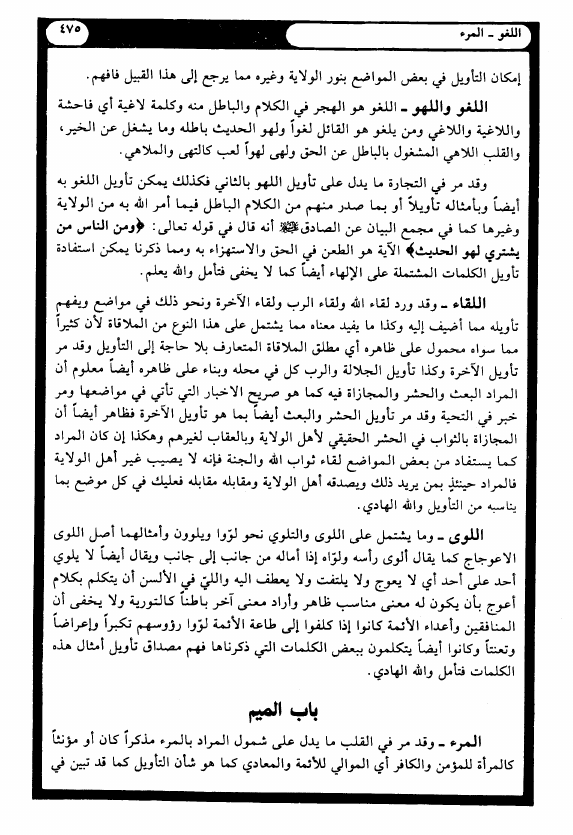 اللغو ـ المرء
٤٧٥
إمكان التأويل في بعض المواضع بنور الولاية وغيره مما يرجع إلى هذا القبيل فافهم.
اللغو واللهو ـ اللغو هو الهجر في الكلام والباطل منه وكلمة لاغية أي فاحشة
واللاغية واللاغي ومن يلغو هو القائل لغواً ولهو الحديث باطله وما يشغل عن الخير،
والقلب اللاهي المشغول بالباطل عن الحق ولهى لهواً لعب كالتهى والملاهي.
وقد مر في التجارة ما يدل على تأويل اللهو بالثاني فكذلك يمكن تأويل اللغو به
أيضاً وبأمثاله تأويلاً أو بما صدر منهم من الكلام الباطل فيما أمر الله به من الولاية
وغيرها كما في مجمع البيان عن الصادق ﷺ أنه قال في قوله تعالى: ﴿ومن الناس من
يشتري لهو الحديث﴾ الآية هو الطعن في الحق والاستهزاء به ومما ذكرنا يمكن استفادة
تأويل الكلمات المشتملة على الإلهاء أيضاً كما لا يخفى فتأمل والله يعلم.
اللقاء ـ وقد ورد لقاء الله ولقاء الرب ولقاء الآخرة ونحو ذلك في مواضع ويفهم
تأويله مما أضيف إليه وكذا ما يفيد معناه مما يشتمل على هذا النوع من الملاقاة لأن كثيراً
مما سواه محمول على ظاهره أي مطلق الملاقاة المتعارف بلا حاجة إلى التأويل وقد مر
تأويل الآخرة وكذا تأويل الجلالة والرب كل في محله وبناء على ظاهره أيضاً معلوم أن
المراد البعث والحشر والمجازاة فيه كما هو صريح الاخبار التي تأتي في مواضعها ومر
خبر في التحية وقد مر تأويل الحشر والبعث أيضاً بما هو تأويل الآخرة فظاهر أيضاً أن
المجازاة بالثواب في الحشر الحقيقي لأهل الولاية وبالعقاب لغيرهم وهكذا إن كان المراد
كما يستفاد من بعض المواضع لقاء ثواب الله والجنة فإنه لا يصيب غير أهل الولاية
فالمراد حينئذٍ بمن يريد ذلك ويصدقه أهل الولاية ومقابله مقابله فعليك في كل موضع بما
يناسبه من التأويل والله الهادي.
اللوى ـ وما يشتمل على اللوى والتلوي نحو لوّوا ويلوون وأمثالهما أصل اللوى
الاعوجاج كما يقال ألوى رأسه ولوّاه إذا أماله من جانب إلى جانب ويقال أيضاً لا يلوي
أحد على أحد أي لا يعوج ولا يلتفت ولا يعطف اليه واللّي في الألسن أن يتكلم بكلام
أعوج بأن يكون له معنى مناسب ظاهر وأراد معنى آخر باطناً كالتورية ولا يخفى أن
المنافقين وأعداء الأئمة كانوا إذا كلفوا إلى طاعة الأئمة لوّوا رؤوسهم تكبراً وإعراضاً
وتعنتاً وكانوا أيضاً يتكلمون ببعض الكلمات التي ذكرناها فهم مصداق تأويل أمثال هذه
الكلمات فتأمل والله الهادي.
باب الميم
المرء ـ وقد مر في القلب ما يدل على شمول المراد بالمرء مذكراً كان أو مؤنثاً
كالمرأة للمؤمن والكافر أي الموالي للأئمة والمعادي كما هو شأن التأويل كما قد تبين في